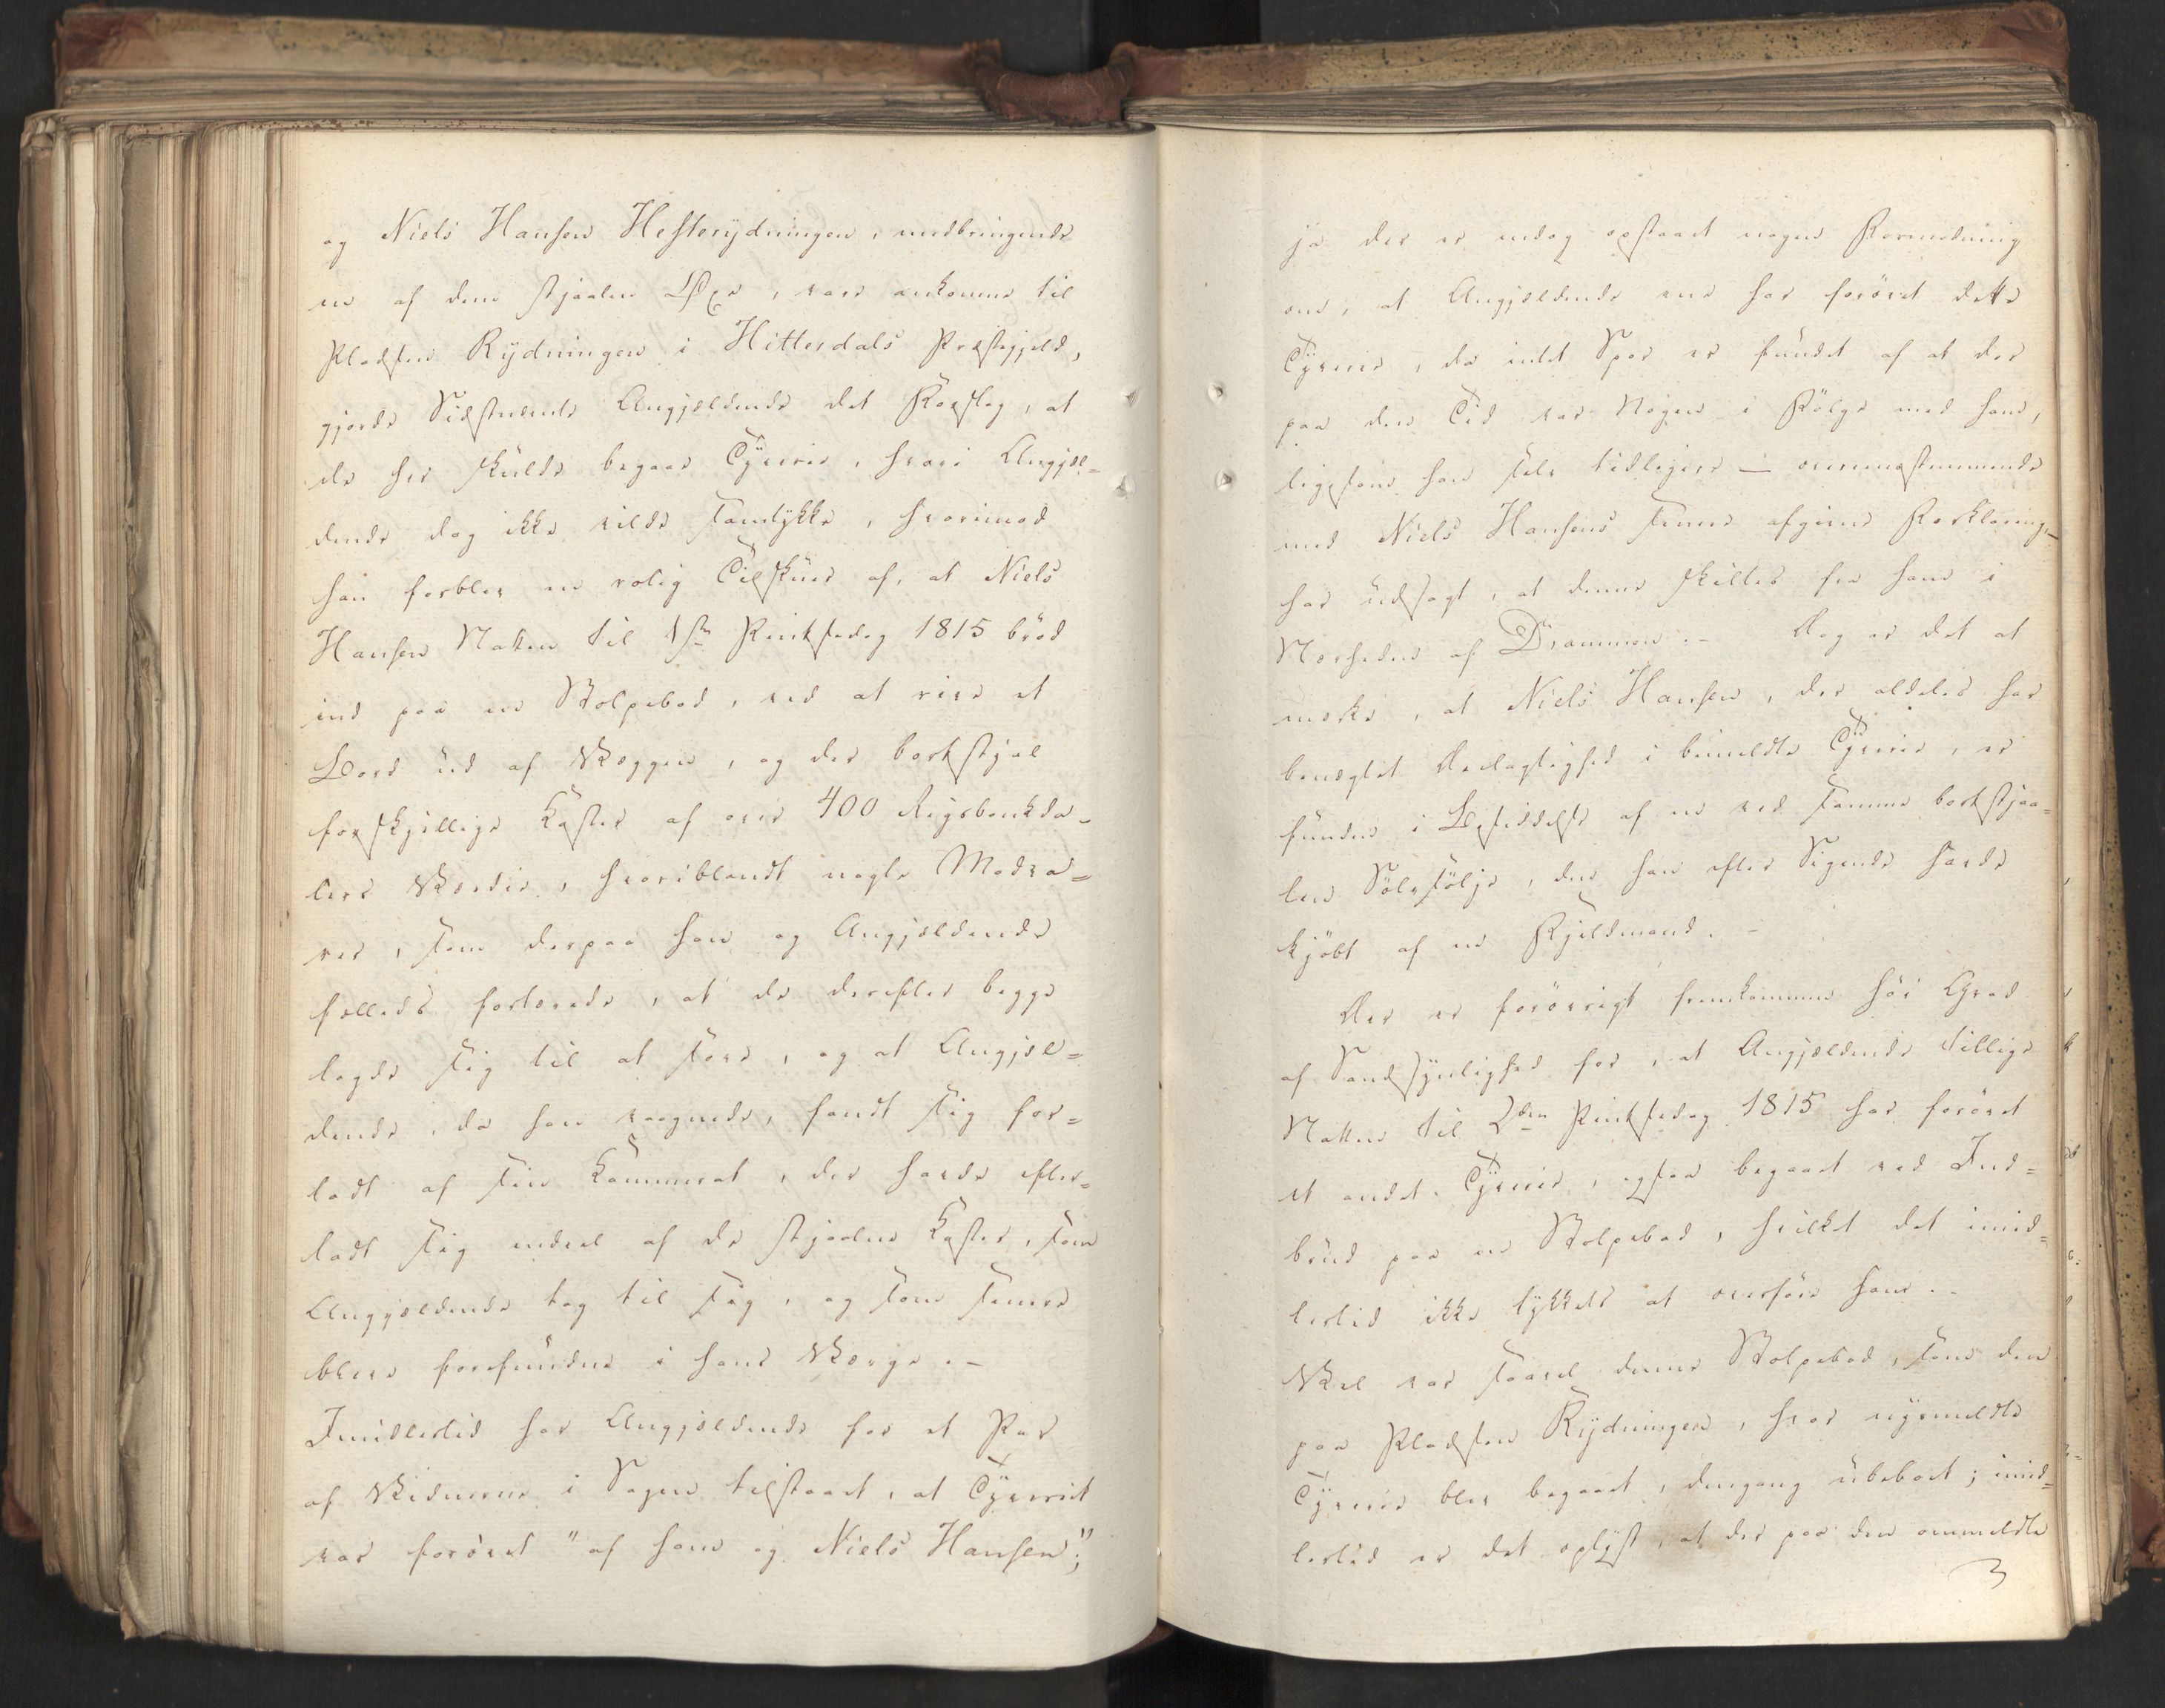 og Niels Hansen Hesterydningen, medbringende
en af dem stjaalen Øxe, vare ankomne til
Pladsen Rydningen i Hitterdals Præstegjeld,
gjorde Sidstnævnte Angjældende det Forslag, at
de her skulde begaae Tyverie, hvori Angjæl=
dende dog ikke vilde samtykke, hvorimod
han forblev en rolig Tilskuer af, at Niels
Hansen Natten til 1ste Pintsedag 1815 brød
ind paa en Stolpebod, ved at rive et
Bord ud af Væggen, og der bortstjal
forskjellige Koster af over 400 Rigsbankda-
lers Værdie, hvoriblandt nogle Madva=
rer, som derpaa han og Angjældende
fælleds fortærede, at de derefter begge
lagde sig til at sove, og at Angjæl=
dende, da han vaagnede, fandt sig for=
ladt af sin Kammerat, der havde efter=
ladt sig endeel af de stjaalne Koster, som
Angjældende tog til sig, og som senere
bleve forefundne i hans Værge.-
Imidlertid har Angjældende for et Par
af Vidnerne i Sagen tilstaaet, at Tyveriet
var forøvet "af ham og Niels Hansen";
ja der er endog opstaaet nogen Formodning
om, at Angjældende ene har forøvet dette
Tyverie, da intet Spor er fundet af at der
paa den Tid var Nogen i Følge med ham,
ligesom han selv tidligere - overeensstemmende
med Niels Hansens senere afgivne Forklaring,-
har udsagt, at denne skiltes fra ham i
Nærheden af Drammen.- Dog er det at
mærke, at Niels Hansen, der aldeles har
benægtet Deelagtighed i bemeldte Tyverie, er
funden i Besiddelse af en ved samme bortstjaa=
len Sølvsølje, den han efter Sigende havde
kjøbt af en Fjeldmand.-
Der er forøvrigt fremkommen høi Grad
af Sandsynlighed for, at Angjældende tillige
Natten til 2den Pintsedag 1815 har forøvet
et andet Tyverie, ogsaa begaaet ved Ind=
brud paa en Stolpebod, hvilket det imid=
lertid ikke lykkedes at overføre ham.-
Vel var saavel denne Stolpebod, som den
paa Pladsen Rydningen, hvor nysmeldte
Tyverie blev begaaet, dengang ubeboet; imid=
lertid er det oplyst, at der paa den ommeldte
3